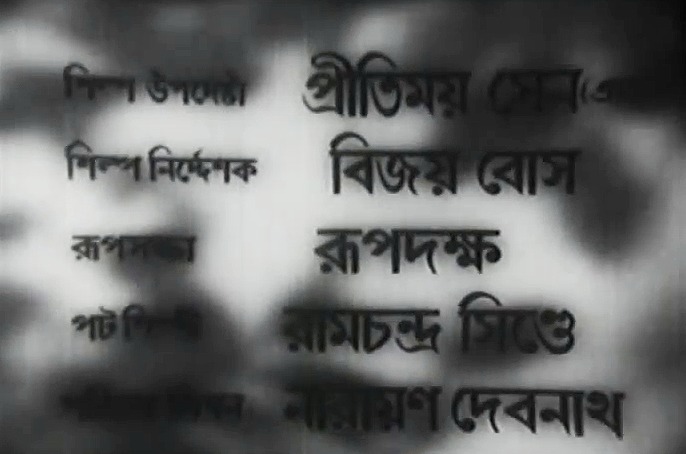 শিল্প উপদেষ্টা প্রীতিময় সেন
শিল্প নির্দ্দেশক বিজয় বোস
রূপসজ্জা রূপদক্ষ
পট শিল্পী রামচন্দ্র সিণ্ডে
নারায়ণ দেবনাথ